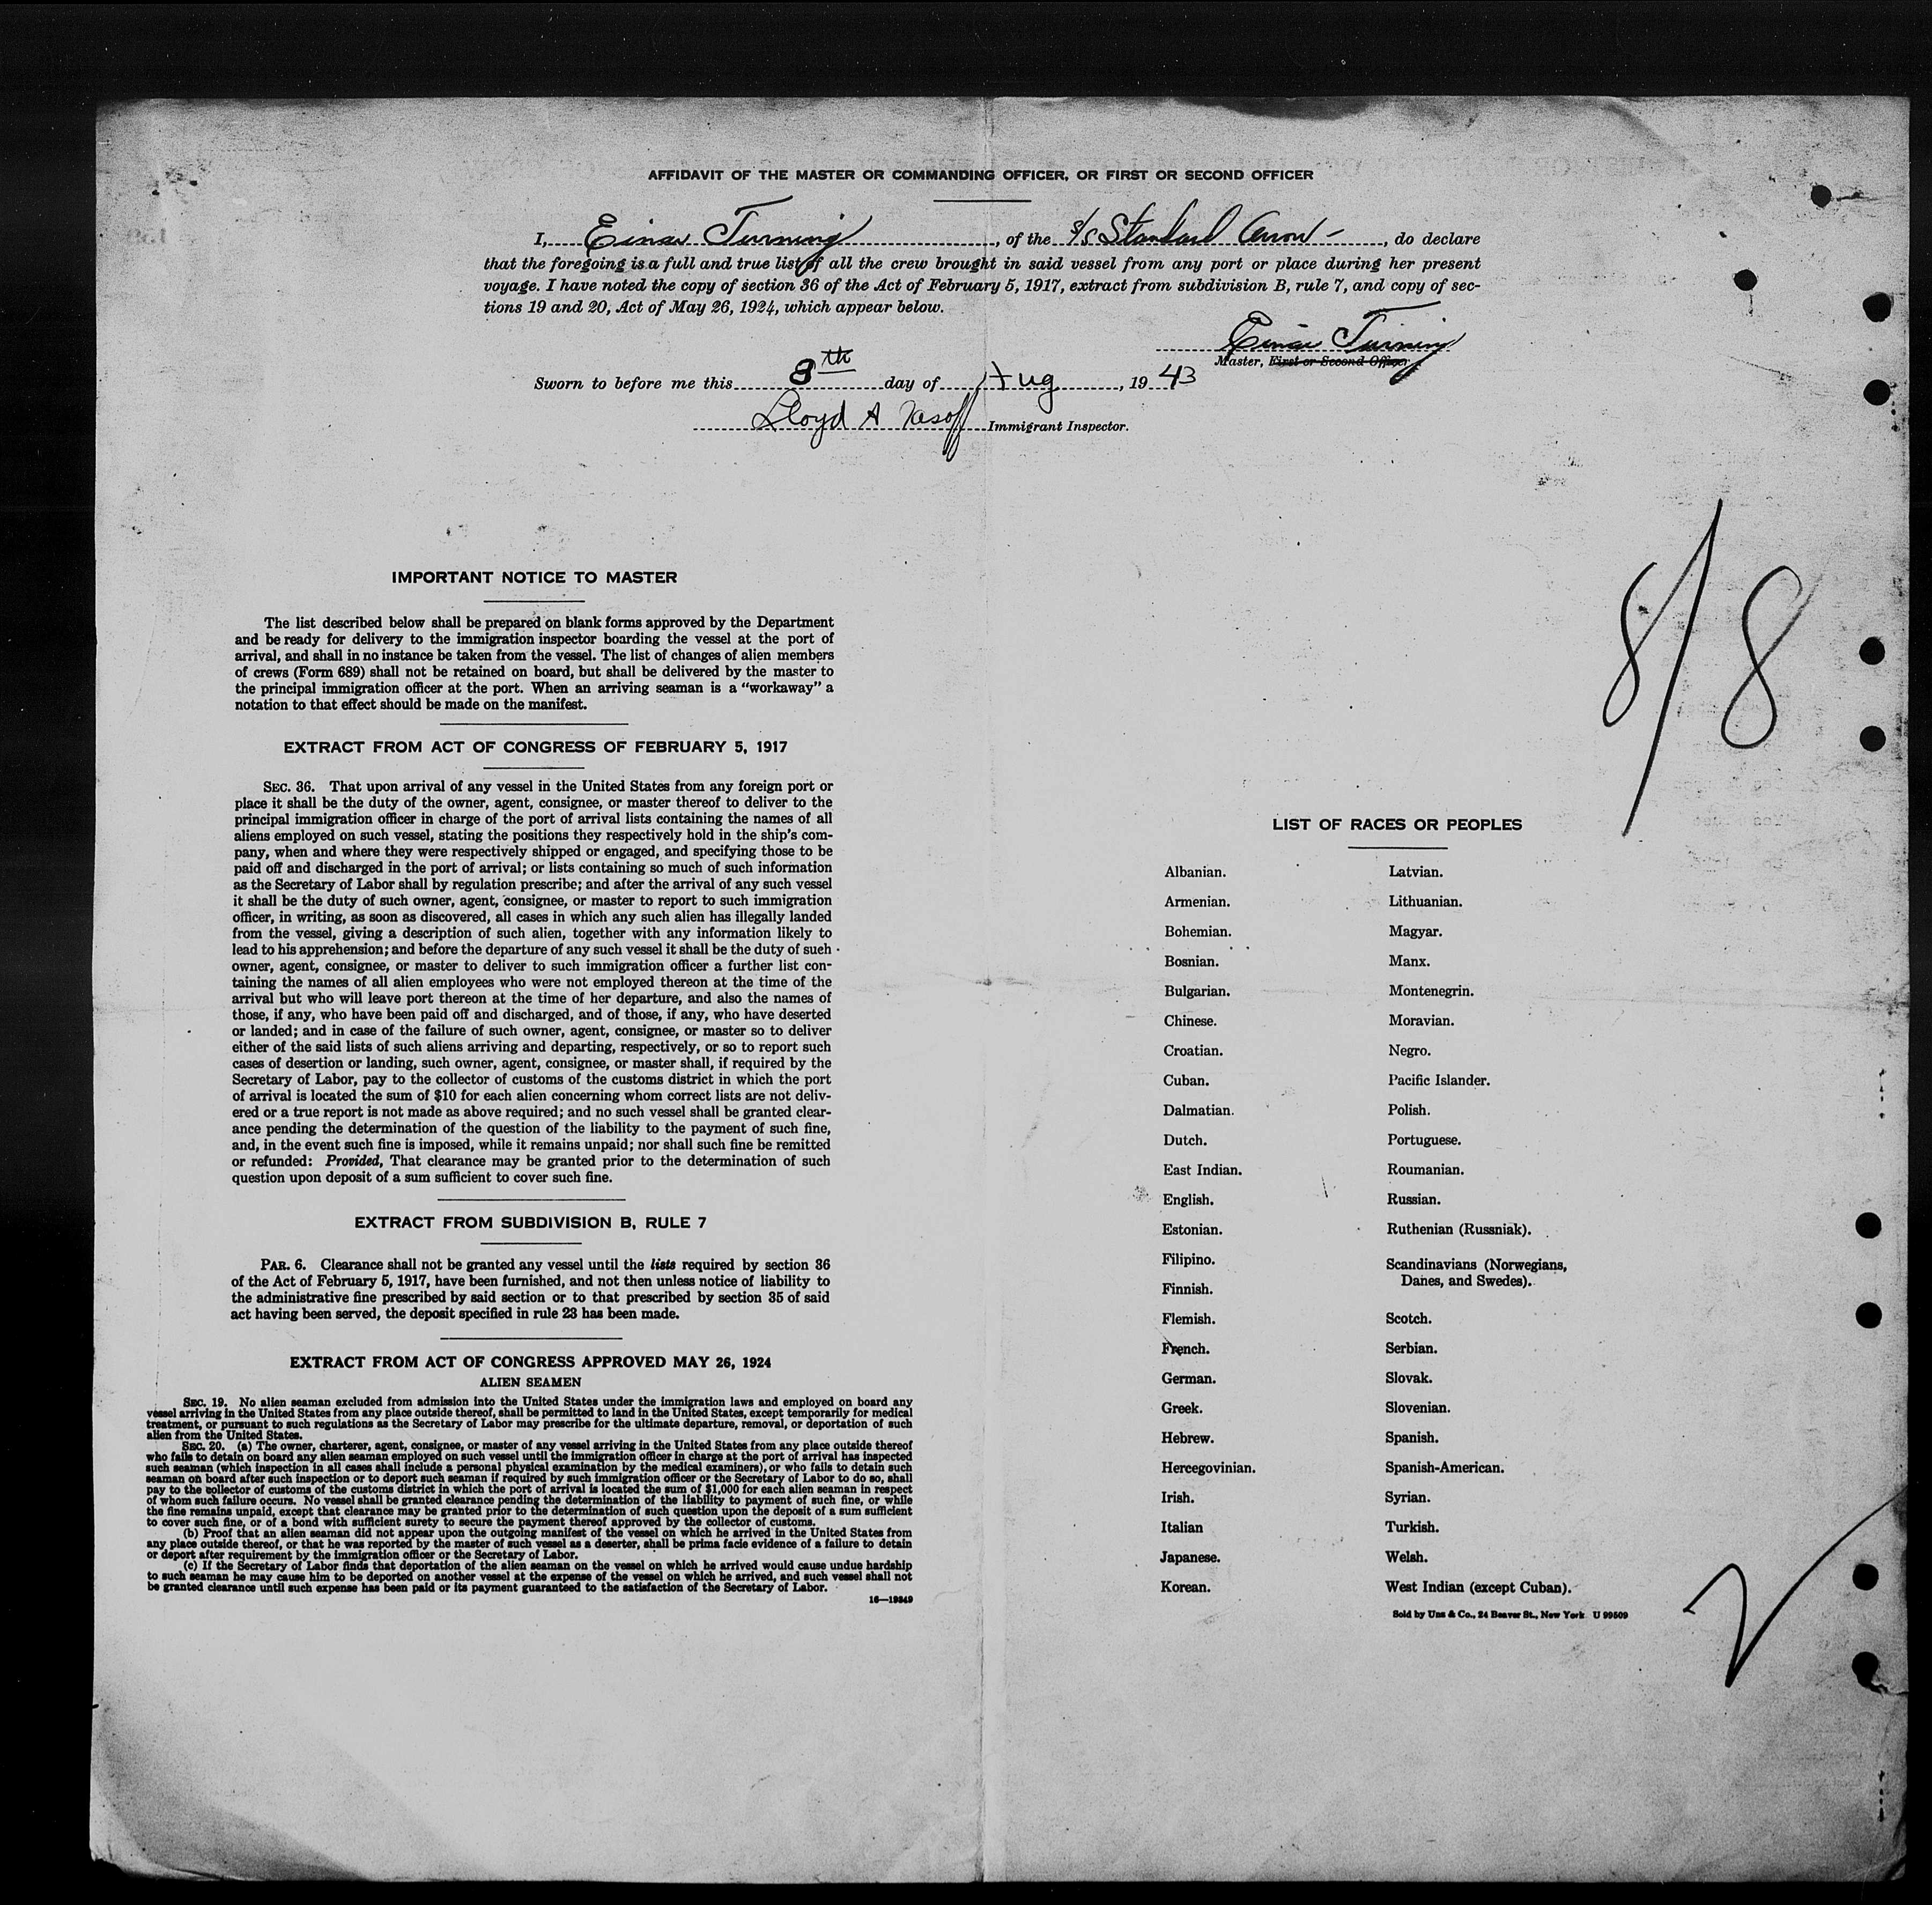 AFFIDAVIT OF THE MASTER OR COMMANDING OFFICER, OR FIRST OR SECOND OFFICER
I, Einar Turning, of the S/S Standard Arrow -, do declare
that the foregoing is a full and true list of all the crew brought in said vessel from any port or place during her present
voyage. I have noted the copy of section 36 of the Act of February 5, 1917, extract from subdivision B, rule 7, and copy of sec-
tions 19 and 20, Act of May 26, 1924, which appear below.
Einar Turning
Master, First or Second Officer.
Sworn to before me this 8th day of Aug, 1943
Lloyd A Immigrant Inspector.
8/8
IMPORTANT NOTICE TO MASTER
The list described below shall be prepared on blank forms approved by the Department
and be ready for delivery to the immigration inspector boarding the vessel at the port of
arrival, and shall in no instance be taken from the vessel. The list of changes of alien members
of crews (Form 689) shall not be retained on board, but shall be delivered by the master to
the principal immigration officer at the port. When an arriving seaman is a "workaway" a
notation to that effect should be made on the manifest.
EXTRACT FROM ACT OF CONGRESS OF FEBRUARY 5, 1917
SEC. 36. That upon arrival of any vessel in the United States from any foreign port or
place it shall be the duty of the owner, agent, consignee, or master thereof to deliver to the
principal immigration officer in charge of the port of arrival lists containing the names of all
aliens employed on such vessel, stating the positions they respectively hold in the ship's com-
pany, when and where they were respectively shipped or engaged, and specifying those to be
paid off and discharged in the port of arrival; or lists containing so much of such information
as the Secretary of Labor shall by regulation prescribe; and after the arrival of any such vessel
it shall be the duty of such owner, agent, consignee, or master to report to such immigration
officer, in writing, as soon as discovered, all cases in which any such alien has illegally landed
from the vessel, giving a description of such alien, together with any information likely to
lead to his apprehension; and before the departure of any such vessel it shall be the duty of such
owner, agent, consignee, or master to deliver to such immigration officer a further list con-
taining the names of all alien employees who were not employed thereon at the time of the
arrival but who will leave port thereon at the time of her departure, and also the names of
those, if any, who have been paid off and discharged, and of those, if any, who have deserted
or landed; and in case of the failure of such owner, agent, consignee, or master so to deliver
either of the said lists of such aliens arriving and departing, respectively, or so to report such
cases of desertion or landing, such owner, agent, consignee, or master shall, if required by the
Secretary of Labor, pay to the collector of customs of the customs district in which the port
of arrival is located the sum of $10 for each alien concerning whom correct lists are not deliv-
ered or a true report is not made as above required; and no such vessel shall be granted clear-
ance pending the determination of the question of the liability to the payment of such fine,
and, in the event such fine is imposed, while it remains unpaid; nor shall such fine be remitted
or refunded: Provided, That clearance may be granted prior to the determination of such
question upon deposit of a sum sufficient to cover such fine.
EXTRACT FROM SUBDIVISION B, RULE 7
PAR. 6. Clearance shall not be granted any vessel until the lists required by section 36
of the Act of February 5, 1917, have been furnished, and not then unless notice of liability to
the administrative fine prescribed by said section or to that prescribed by section 35 of said
act having been served, the deposit specified in rule 23 has been made.
EXTRACT FROM ACT OF CONGRESS APPROVED MAY 26, 1924
ALIEN SEAMEN
SEC. 19. No alien seaman excluded from admission into the United States under the immigration laws and employed on board any
vessel arriving in the United States from any place outside thereof, shall be permitted to land in the United States, except temporarily for medical
treatment, or pursuant to such regulations as the Secretary of Labor may prescribe for the ultimate departure, removal, or deportation of such
alien from the United States.
SEC. 20. (a) The owner, charterer, agent, consignee, or master of any vessel arriving in the United States from any place outside thereof
who fails to detain on board any alien seaman employed on such vessel until the immigration officer in charge at the port of arrival has inspected
such seaman (which inspection in all cases shall include a personal physical examination by the medical examiners), or who fails to detain such
seaman on board after such inspection or to deport such seaman if required by such immigration officer or the Secretary of Labor to do so, shall
pay to the collector of customs of the customs district in which the port of arrival is located the sum of $1,000 for each alien seaman in respect
of whom such failure occurs. No vessel shall be granted clearance pending the determination of the liability to the payment of such fine, or while
the fine remains unpaid, except that clearance may be granted prior to the determination of such question upon the deposit of a sum sufficient
to cover such fine, or of a bond with sufficient surety to secure the payment thereof approved by the collector of customs.
(b) Proof that an alien seaman did not appear upon the outgoing manifest of the vessel on which he arrived in the United States from
any place outside thereof, or that he was reported by the master of such vessel as a deserter, shall be prima facie evidence of a failure to detain
or deport after requirement by the immigration officer or the Secretary of Labor.
(c) If the Secretary of Labor finds that deportation of the alien seaman on the vessel on which he arrived would cause undue hardship
to such seaman he may cause him to be deported on another vessel at the expense of the vessel on which he arrived, and such vessel shall not
be granted clearance until such expense has been paid or its payment guaranteed to the satisfaction of the Secretary of Labor.
16—19849
LIST OF RACES OR PEOPLES
Albanian.
Armenian.
Bohemian.
Bosnian.
Bulgarian.
Chinese.
Croatian.
Cuban.
Dalmatian.
Dutch.
East Indian.
English.
Estonian.
Filipino.
Finnish.
Flemish.
French.
German.
Greek.
Hebrew.
Hercegovinian.
Irish.
Italian
Japanese.
Korean.
Latvian.
Lithuanian.
Magyar.
Manx.
Montenegrin.
Moravian.
Negro.
Pacific Islander.
Polish.
Portuguese.
Roumanian.
Russian.
Ruthenian (Russniak).
Scandinavians (Norwegians,
Danes, and Swedes).
Scotch.
Serbian.
Slovak.
Slovenian.
Spanish.
Spanish-American.
Syrian.
Turkish.
Welsh.
West Indian (except Cuban).
Sold by Unz & Co., 24 Beaver St., New York U 99509